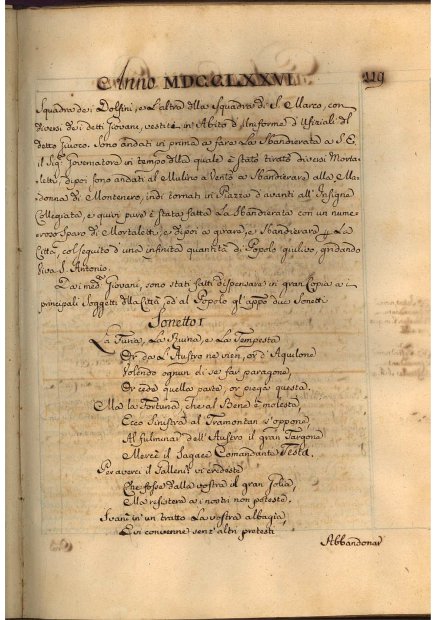 Anno MDCCLXXVI. 119
Squadra dei Dolfini, e l'altra della Squadra di S. Marco, con
diversi dei detti Giovani, vestiti in Abito d'Uniforme d'Ufiziali del
detto Giuoco. Sono andati in prima a fare la Sbandierata a S. E.
il Sig.r Governatore in tempo della quale è stato tiratto diversi Morta-
letti, dipoi sono andati al Mulino a Vento a Sbandierare alla Ma-
donna di Montenero, indi tornati in Piazza d'avanti all'Insigne
Collegiata, e quivi pure è stata fatta la Sbandierata con un nume-
roso Sparo di Mortaletti, e dipoi a girare, e Sbandierare p la
Città, col seguito d'una infinita quantità di Popolo giulivo, gridando
Viva S. Antonio.
Da i med.i Giovani, sono stati fatti dispensare in gran Copia a i
principali Soggetti della Città, ed al Popolo gl'appo due Sonetti
Sonetto I
La Furia, la Ruina, e la Tempesta
Or da l'Austro ne vien, or d'Aquilone
Volendo ognun di se far paragone,
Or cede quella parte, or piega questa.
Ma la Fortuna, che al Bene è molesta,
Ecco Sinistra al Tramontan s'oppone,
Al fulminar dell'Austro il gran Targone
Mercè il Sagace Comandante Testa.
Per averci il Galleni vi credeste
Che fosse dalla vostra il gran Golia,
Ma resistere a i nostri non poteste.
Svanì in un tratto la vostra albagia,
E vi convenne senz'altri protesti
Abbandonar